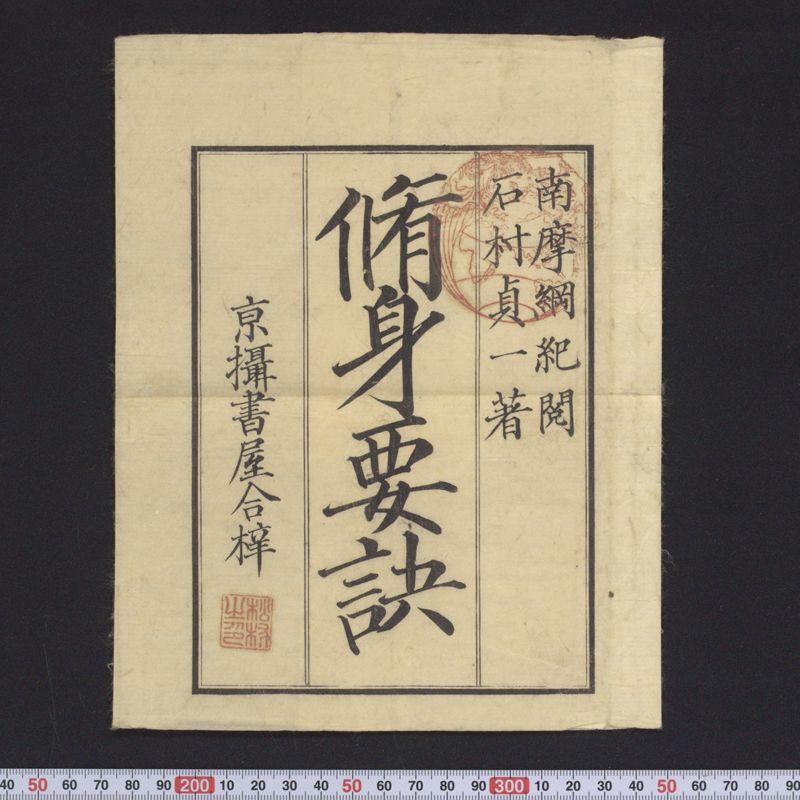 南摩綱紀閲
石村貞一著
脩身要訣
亰攝書屋合梓
40 50 60 70 80 90 200 10 20 30 40 50 60 70 80 90 300 10 20 30 40 50 60 70 80 90